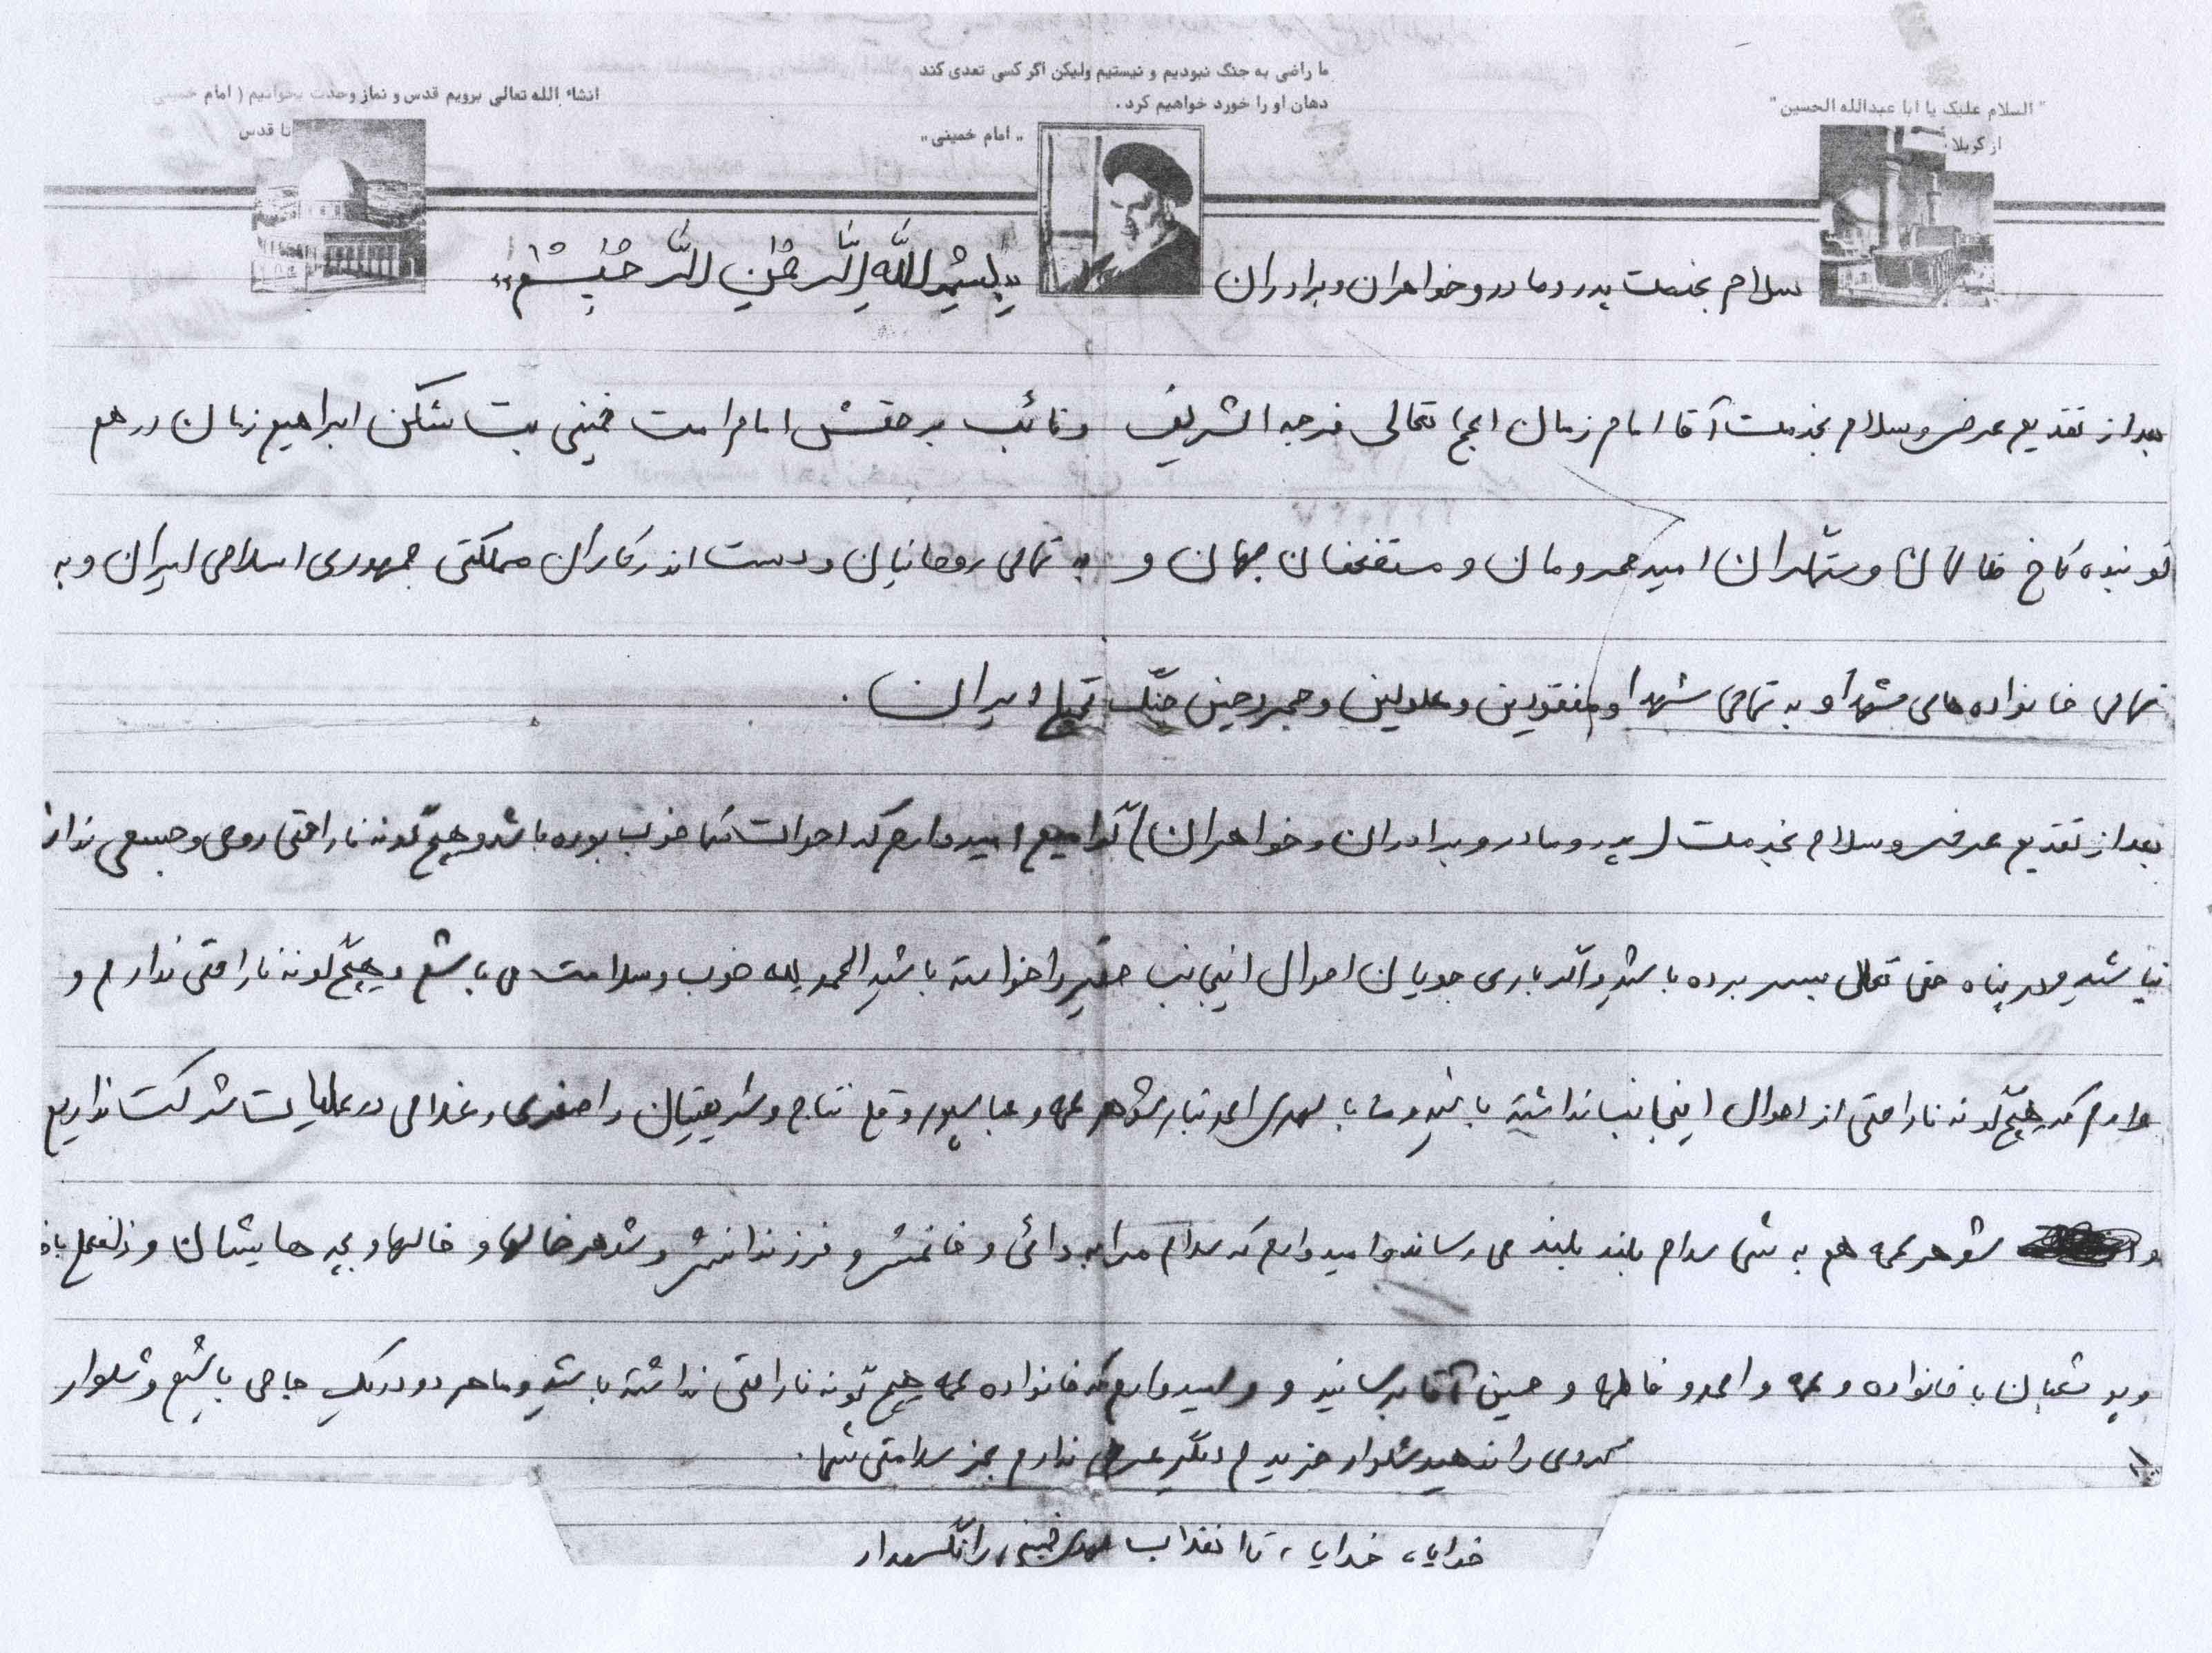 ما راضی به جنگ نبودیم و نیستیم ولیکن اگر کسی تعدی کند
دهان او را خورد خواهیم کرد.
"امام خمینی"
"السلام علیک یا ابا عبدالله الحسین"
از کربلا
انشاء الله تعالی برویم قدس و نماز وحدت بخوانیم (امام خمینی)
تا قدس
سلام بخدمت پدر و مادر و خواهران و برادران
«بسم الله الرحمن الرحیم»
بعد از تقدیم عرض و سلام بخدمت آقا امام زمان عجل تعالی فرجه الشریف و نائب بر حقش امام امت خمینی بت شکن ابراهیم زمان در هم
کوبنده کاخ ظالمان و ستمگران امید محرومان و مستضعفان جهان و به تمامی روحانیان و دست اندرکاران مملکتی جمهوری اسلامی ایران و به
تمامی خانواده های شهدا و به تمامی شهدا و مفقودین و معلولین و مجروحین جنگ تحمیلی ایران.
بعد از تقدیم عرض و سلام بخدمت (پدر و مادر و برادران و خواهران) گرامیم امیدوارم که احوالت شما خوب بوده باشد و هیچگونه ناراحتی روحی و جسمی نداشته
نباشید و در پناه حق تعالی بسر برده باشید و اگر باری جویای احوال اینجانب حقیر را خواسته باشید الحمد لله خوب و سلامت می باشم و هیچگونه ناراحتی ندارم و
دارم که هیچگونه ناراحتی از احوال اینجانب نداشته باشید و ما با مهدی احمدتبار شوهر عمه و عباسپور و نتاج و شریفیان و اصغری و غلامی در عملیات شرکت نداریم
و شوهر عمه هم به شما سلام بلند بلند می رساند و امیدوارم که سلام مرا به دائی و خانمش و فرزندانش و شوهر خالها و خالها و بچه هایشان و
و با خانواده و عمه و احمد و فاطمه و حسین آقا برسانید و امیدوارم که خانواده عمه هیچگونه ناراحتی نداشته باشید و ما هر دو در یک جا می باشیم و شلوار
را شلوار خریدم دیگر عرضی ندارم بجز سلامتی شما.
خدایا، خدایا، تا انقلاب مهدی خمینی را نگهدار